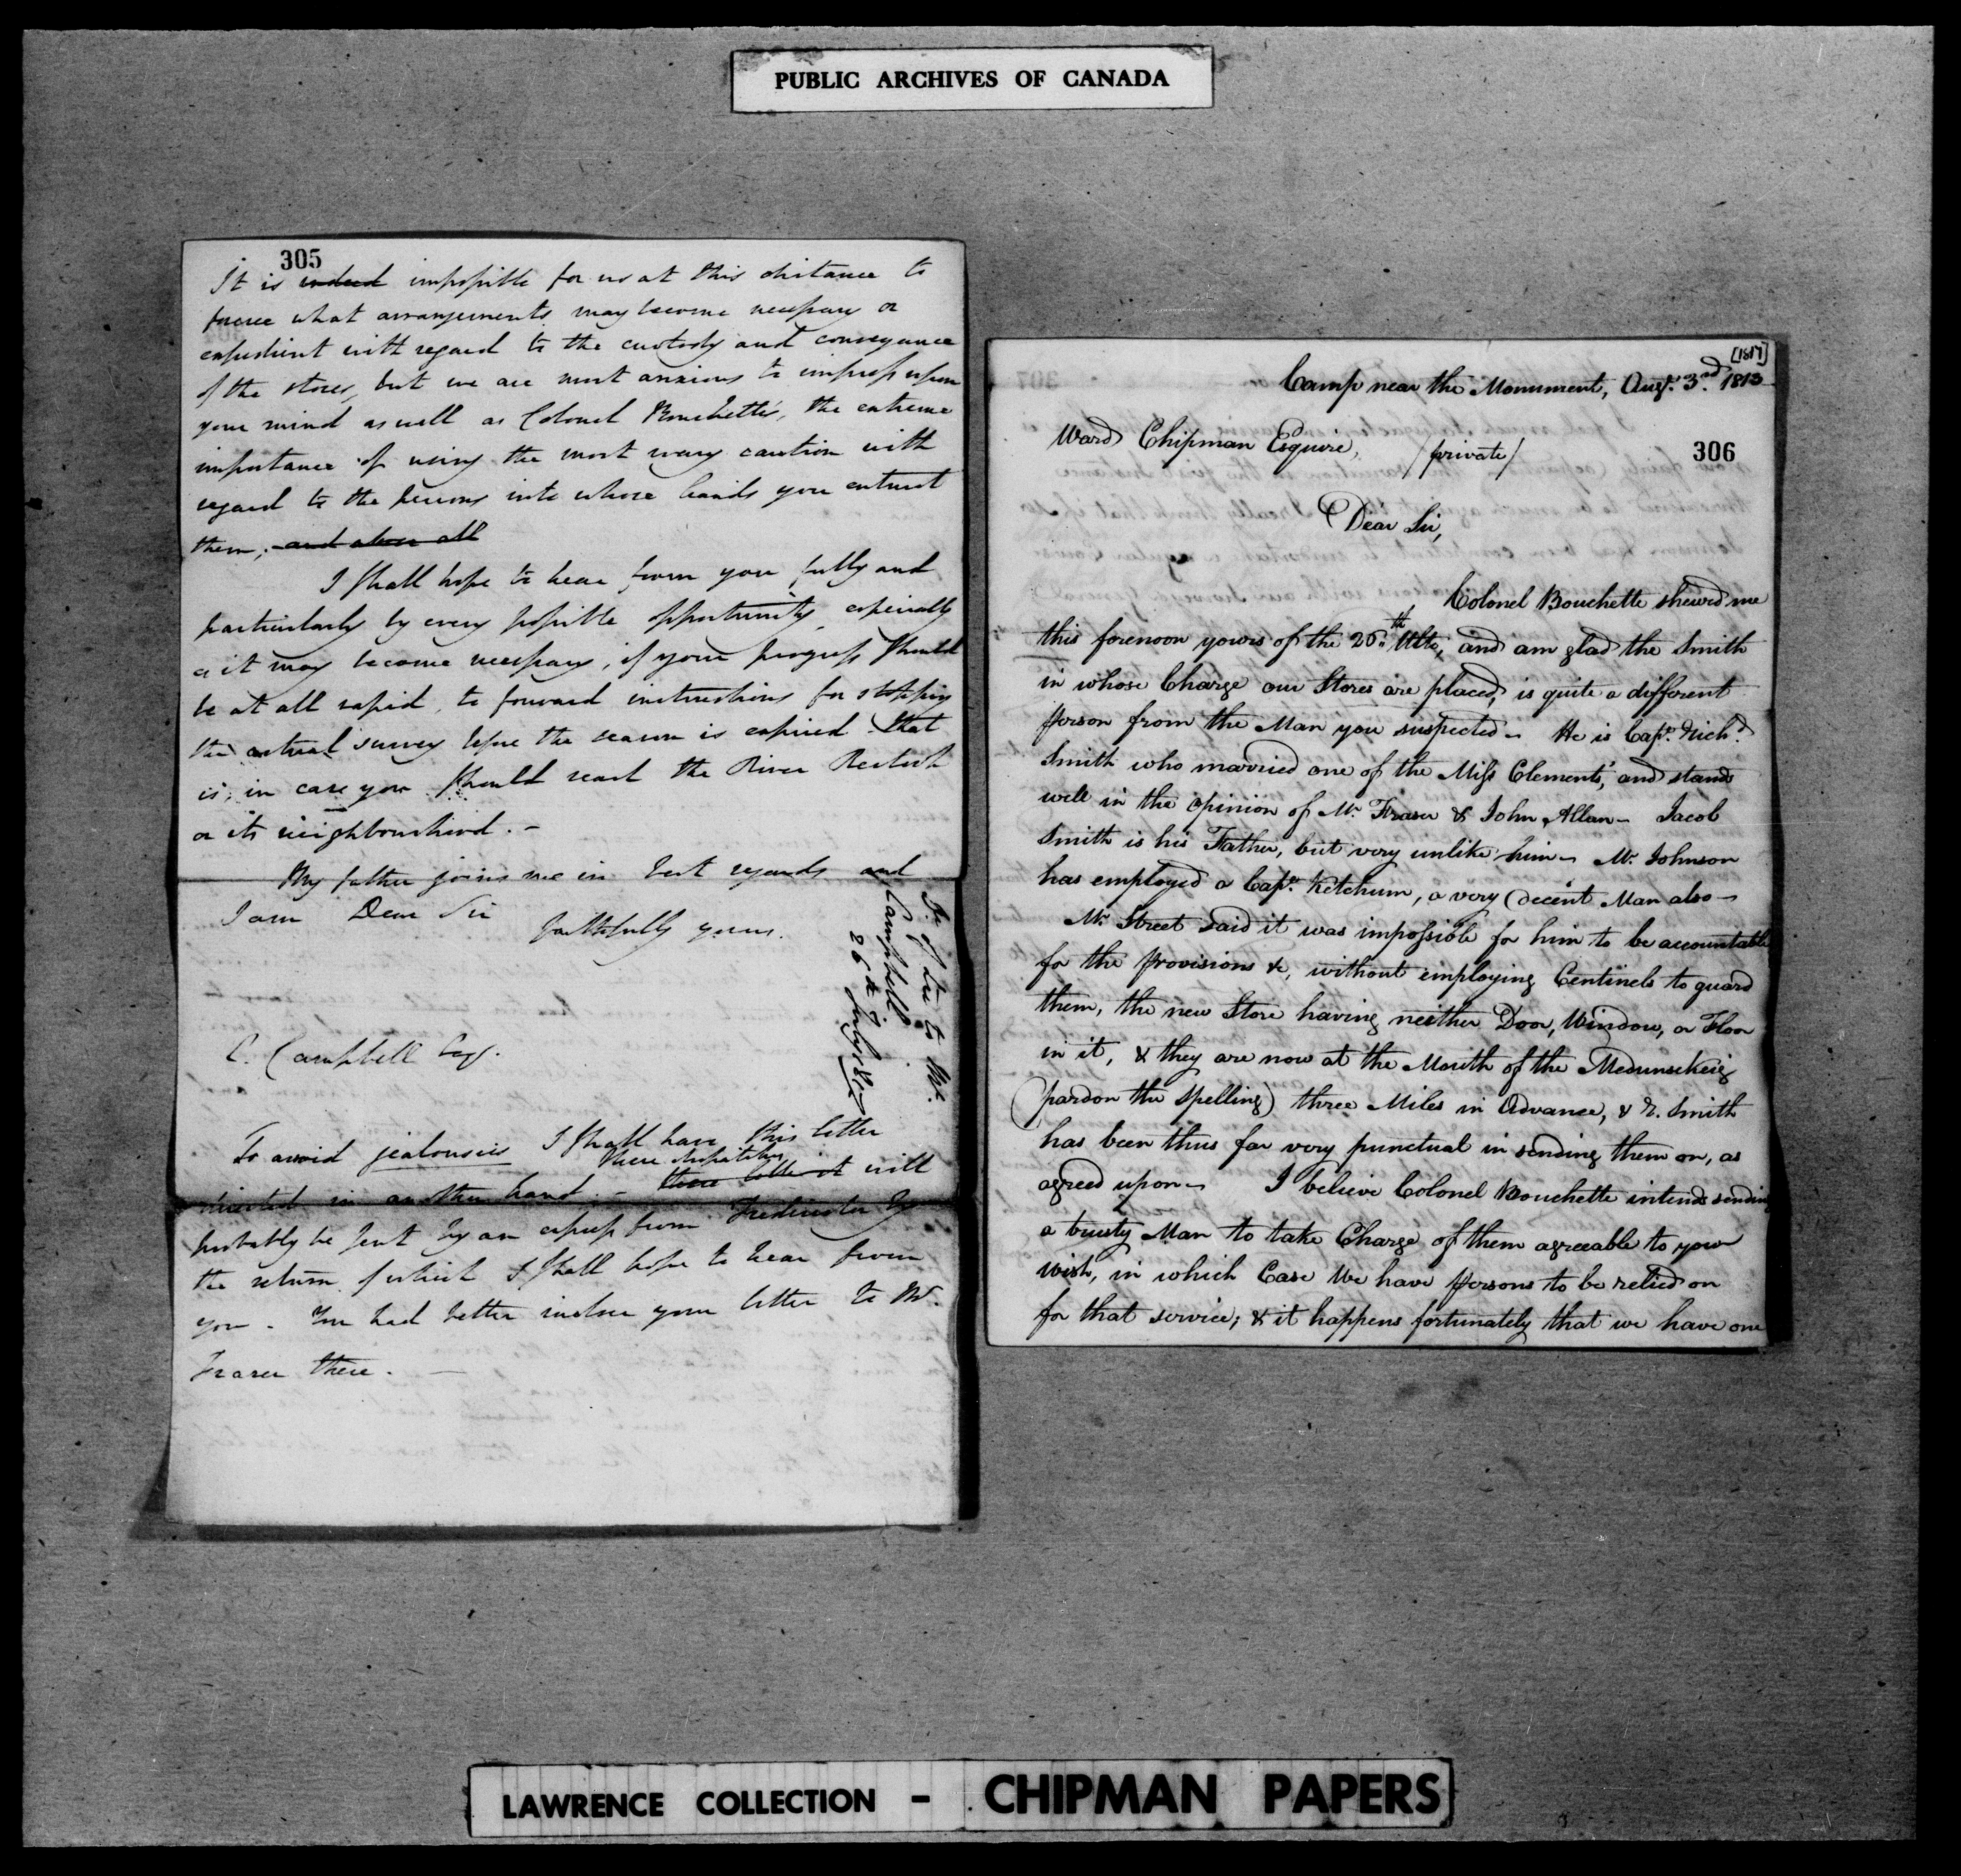 PUBLIC ARCHIVES OF CANADA
305
It is indeed impossible for us at this distance to
foresee what arrangements may become necessary or
expedient with regard to the custody and conveyance
of the stores, but we are most anxious to impress upon
your mind as well as Colonel Bouchette's, the extreme
importance of using the most wary caution with
regard to the persons into whose hands you entrust
them; and above all
I shall hope to hear from you fully and
particularly by every possible opportunity, especially
as it may become necessary, if your progress should
be at all rapid, to forward instructions for stopping
the actual survey before the season is expired that
is, in case you should reach the River Restook
or its neighbourhood. -
My father joins me in best regards and
I am Dear Sir
faithfully yours.
C. Campbell Esqr.
Lre to Mr.
Campbell
26th July 1817
To avoid jealousies I shall have this letter
directed in another hand. - these dispatches will
probably be sent by an express from Fredericton by
the return of which I shall hope to hear from
you - You had better inclose your letter to Mr.
Fraser there. -
[1817]
Camp near the Monument, Augt. 3rd. 1813
306
Ward Chipman Esquire, /private/
Dear Sir,
Colonel Bouchette shewed me
this forenoon yours of the 26th. Ulto, and am glad the Smith
in whose Charge our Stores are placed, is quite a different
person from the Man you suspected - He is Capt. Richd.
Smith who married one of the Miss Clements', and stands
well in the opinion of Mr. Fraser & John Allan - Jacob
Smith is his Father, but very unlike him - Mr. Johnson
has employed a Capt. Ketchum, a very decent Man also -
Mr. Street said it was impossible for him to be accountable
for the provisions &c, without employing Centinels to guard
them, the new Store having neither Door, Window, or Floor
in it, & they are now at the Mouth of the Medunsekeig
(pardon the Spelling) three Miles in Advance, & R. Smith
has been thus far very punctual in sending them on, as
agreed upon - I believe Colonel Bouchette intends sending
a trusty Man to take Charge of them agreeable to your
wish, in which Case We have persons to be relied on
for that service; & it happens fortunately that we have one
LAWRENCE COLLECTION - CHIPMAN PAPERS